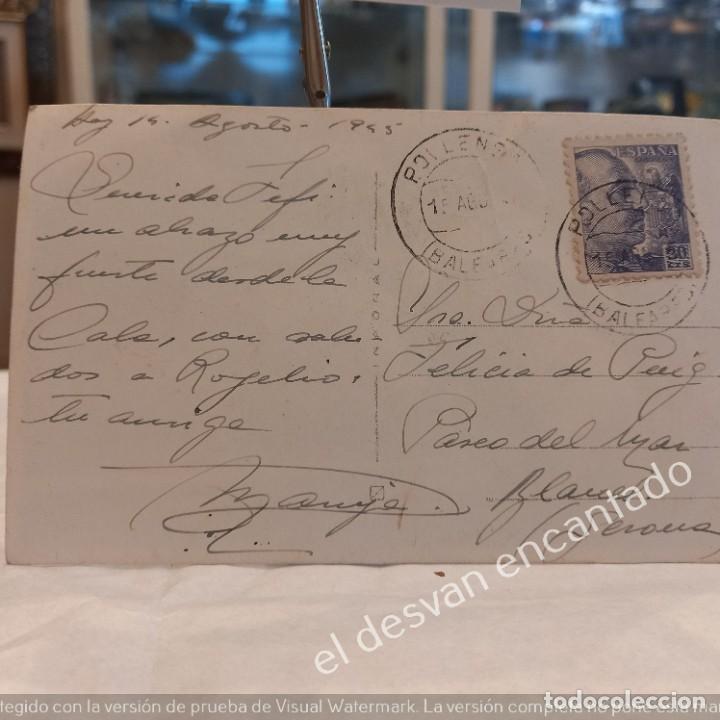 Hoy 14. Agosto - 1945
Querida Fefi:
un abrazo muy
fuerte desde la
Cala, con salu-
dos a Rogelio,
tu amiga
Maruja.
IMPONAL
POLLENSA
15 AGO
(BALEARES)
ESPAÑA
20
CTS
POLLENSA
15 A
(BALEARES)
Sra. Dña
Felicia de Puig
Paseo del Mar
Blanes
(Gerona)
el desvan encantado
todocoleccion
tegido con la versión de prueba de Visual Watermark. La versión completa no pone esta mar